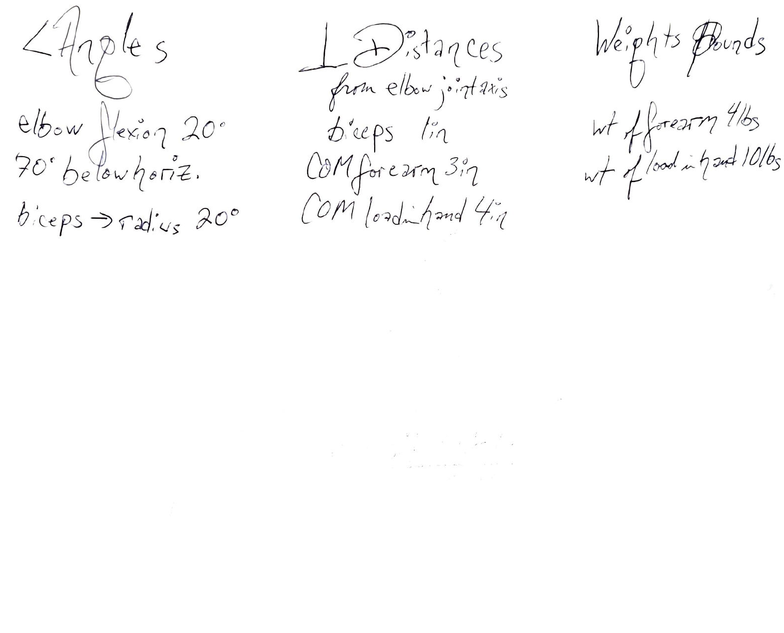 <Angles
elbow flexion 20°
70° below horiz.
biceps → radius 20°
⊥ Distances
from elbow joint axis
biceps 1in
COM forearm 3in
COM load in hand 4in
Weights Pounds
wt of forearm 4lbs
wt of load in hand 10lbs